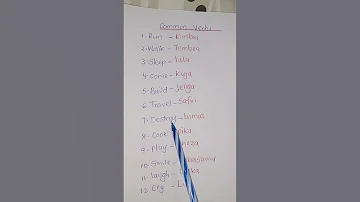 Common Verbs
1. Run - Kimbia
2. Walk - Tembea
3. Sleep - lala
4. Come - Kuja
5. Build - Jenga
6. Travel - Safiri
7. Destroy
8. Cook
9. Play
10. Smile
11. laugh
12. Cry